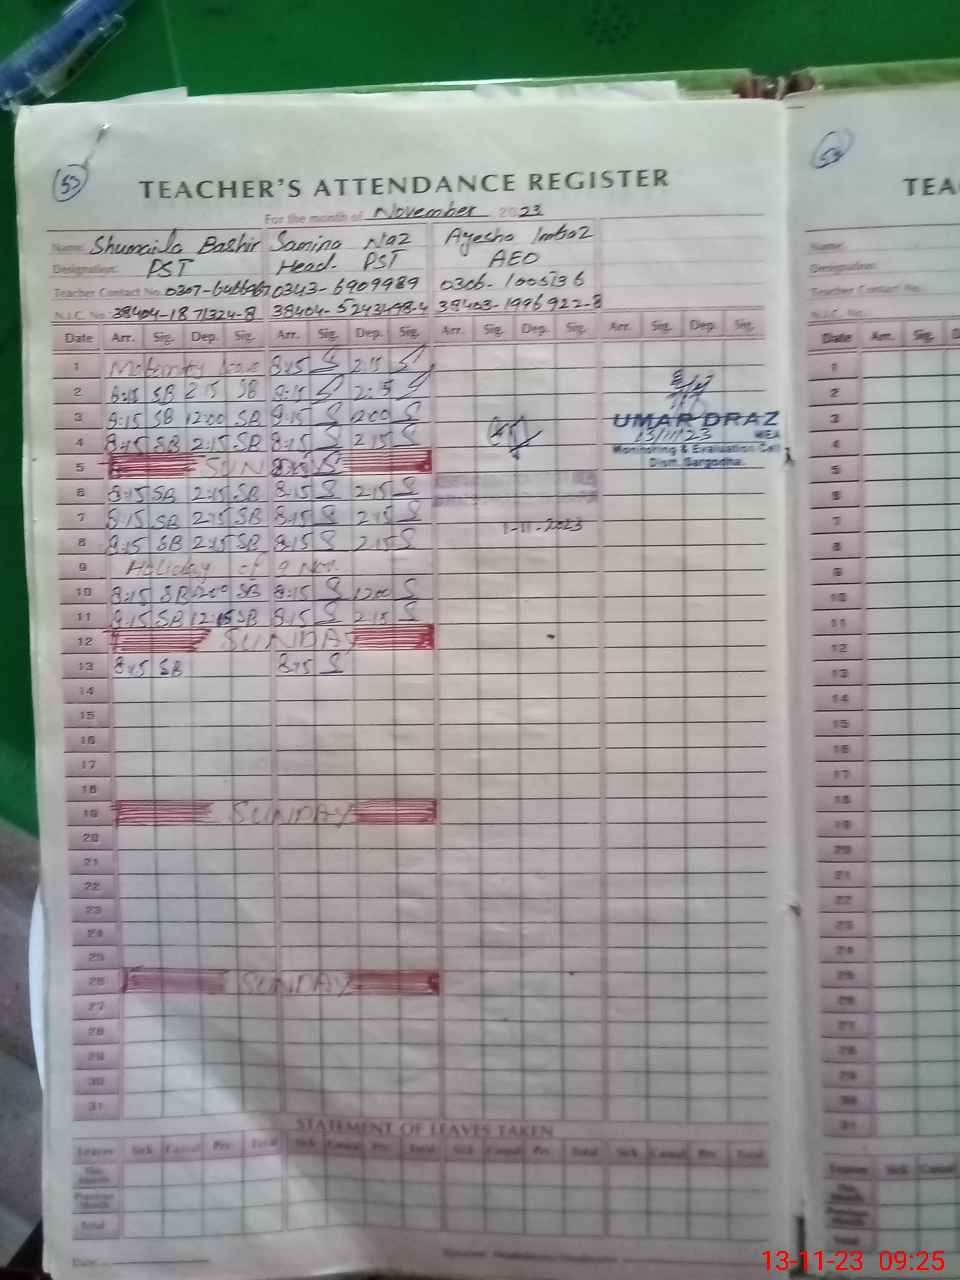 53
TEACHER'S ATTENDANCE REGISTER
For the month of November 2023
Name: Shumaila Bashir Samina Naz Ayesha Imtiaz
Designation: PST Head. PST AEO
Teacher Contact No. 0343-6909989 0306-1005136
N.I.C. No. 38404-1871324-8 38403-1996922-8
Date Arr. Sig. Dep. Sig. Arr. Sig. Dep. Sig. Arr. Sig. Dep. Sig. Arr. Sig. Dep. Sig.
1 Maternity leave 8:15 S 2:15 S
2 8:15 SB 2:15 SB 8:15 S 2:15 S
3 8:15 SB 12:00 SB 8:15 S 12:00 S
4 8:15 SB 2:15 SB 8:15 S 2:15 S
UMAR DRAZ
13/11/23 MEA
Monitoring & Evaluation Cell
Distt. Sargodha.
5 SUNDAY
6 8:15 SB 2:15 SB 8:15 S 2:15 S
7 8:15 SB 2:15 SB 8:15 S 2:15 S
1-11-2023
8 8:15 SB 2:15 SB 8:15 S 2:15 S
9 Holiday of 9 Nov.
10 8:15 SB 12:00 SB 8:15 S 12:00 S
11 8:15 SB SB 8:15 S 2:15 S
12 SUNDAY
13 8:15 SB 8:15 S
14
15
16
17
18
19 SUNDAY
20
21
22
23
24
25
26 SUNDAY
27
28
29
30
31
STATEMENT OF LEAVES TAKEN
Leaves Sick Casual Prv. Total Sick Casual Prv. Total Sick Casual Prv. Total Sick Casual Prv. Total
This Month
Previous Month
Total
Date:
TEA
Name:
Designation:
Teacher Contact No.
N.I.C. No.
Date Arr. Sig. D
1
2
3
4
5
6
7
8
9
10
11
12
13
14
15
16
17
18
19
20
21
22
23
24
25
26
27
28
29
30
31
Leaves Sick Casual
This Month
Previous Month
Total
13-11-23 09:25